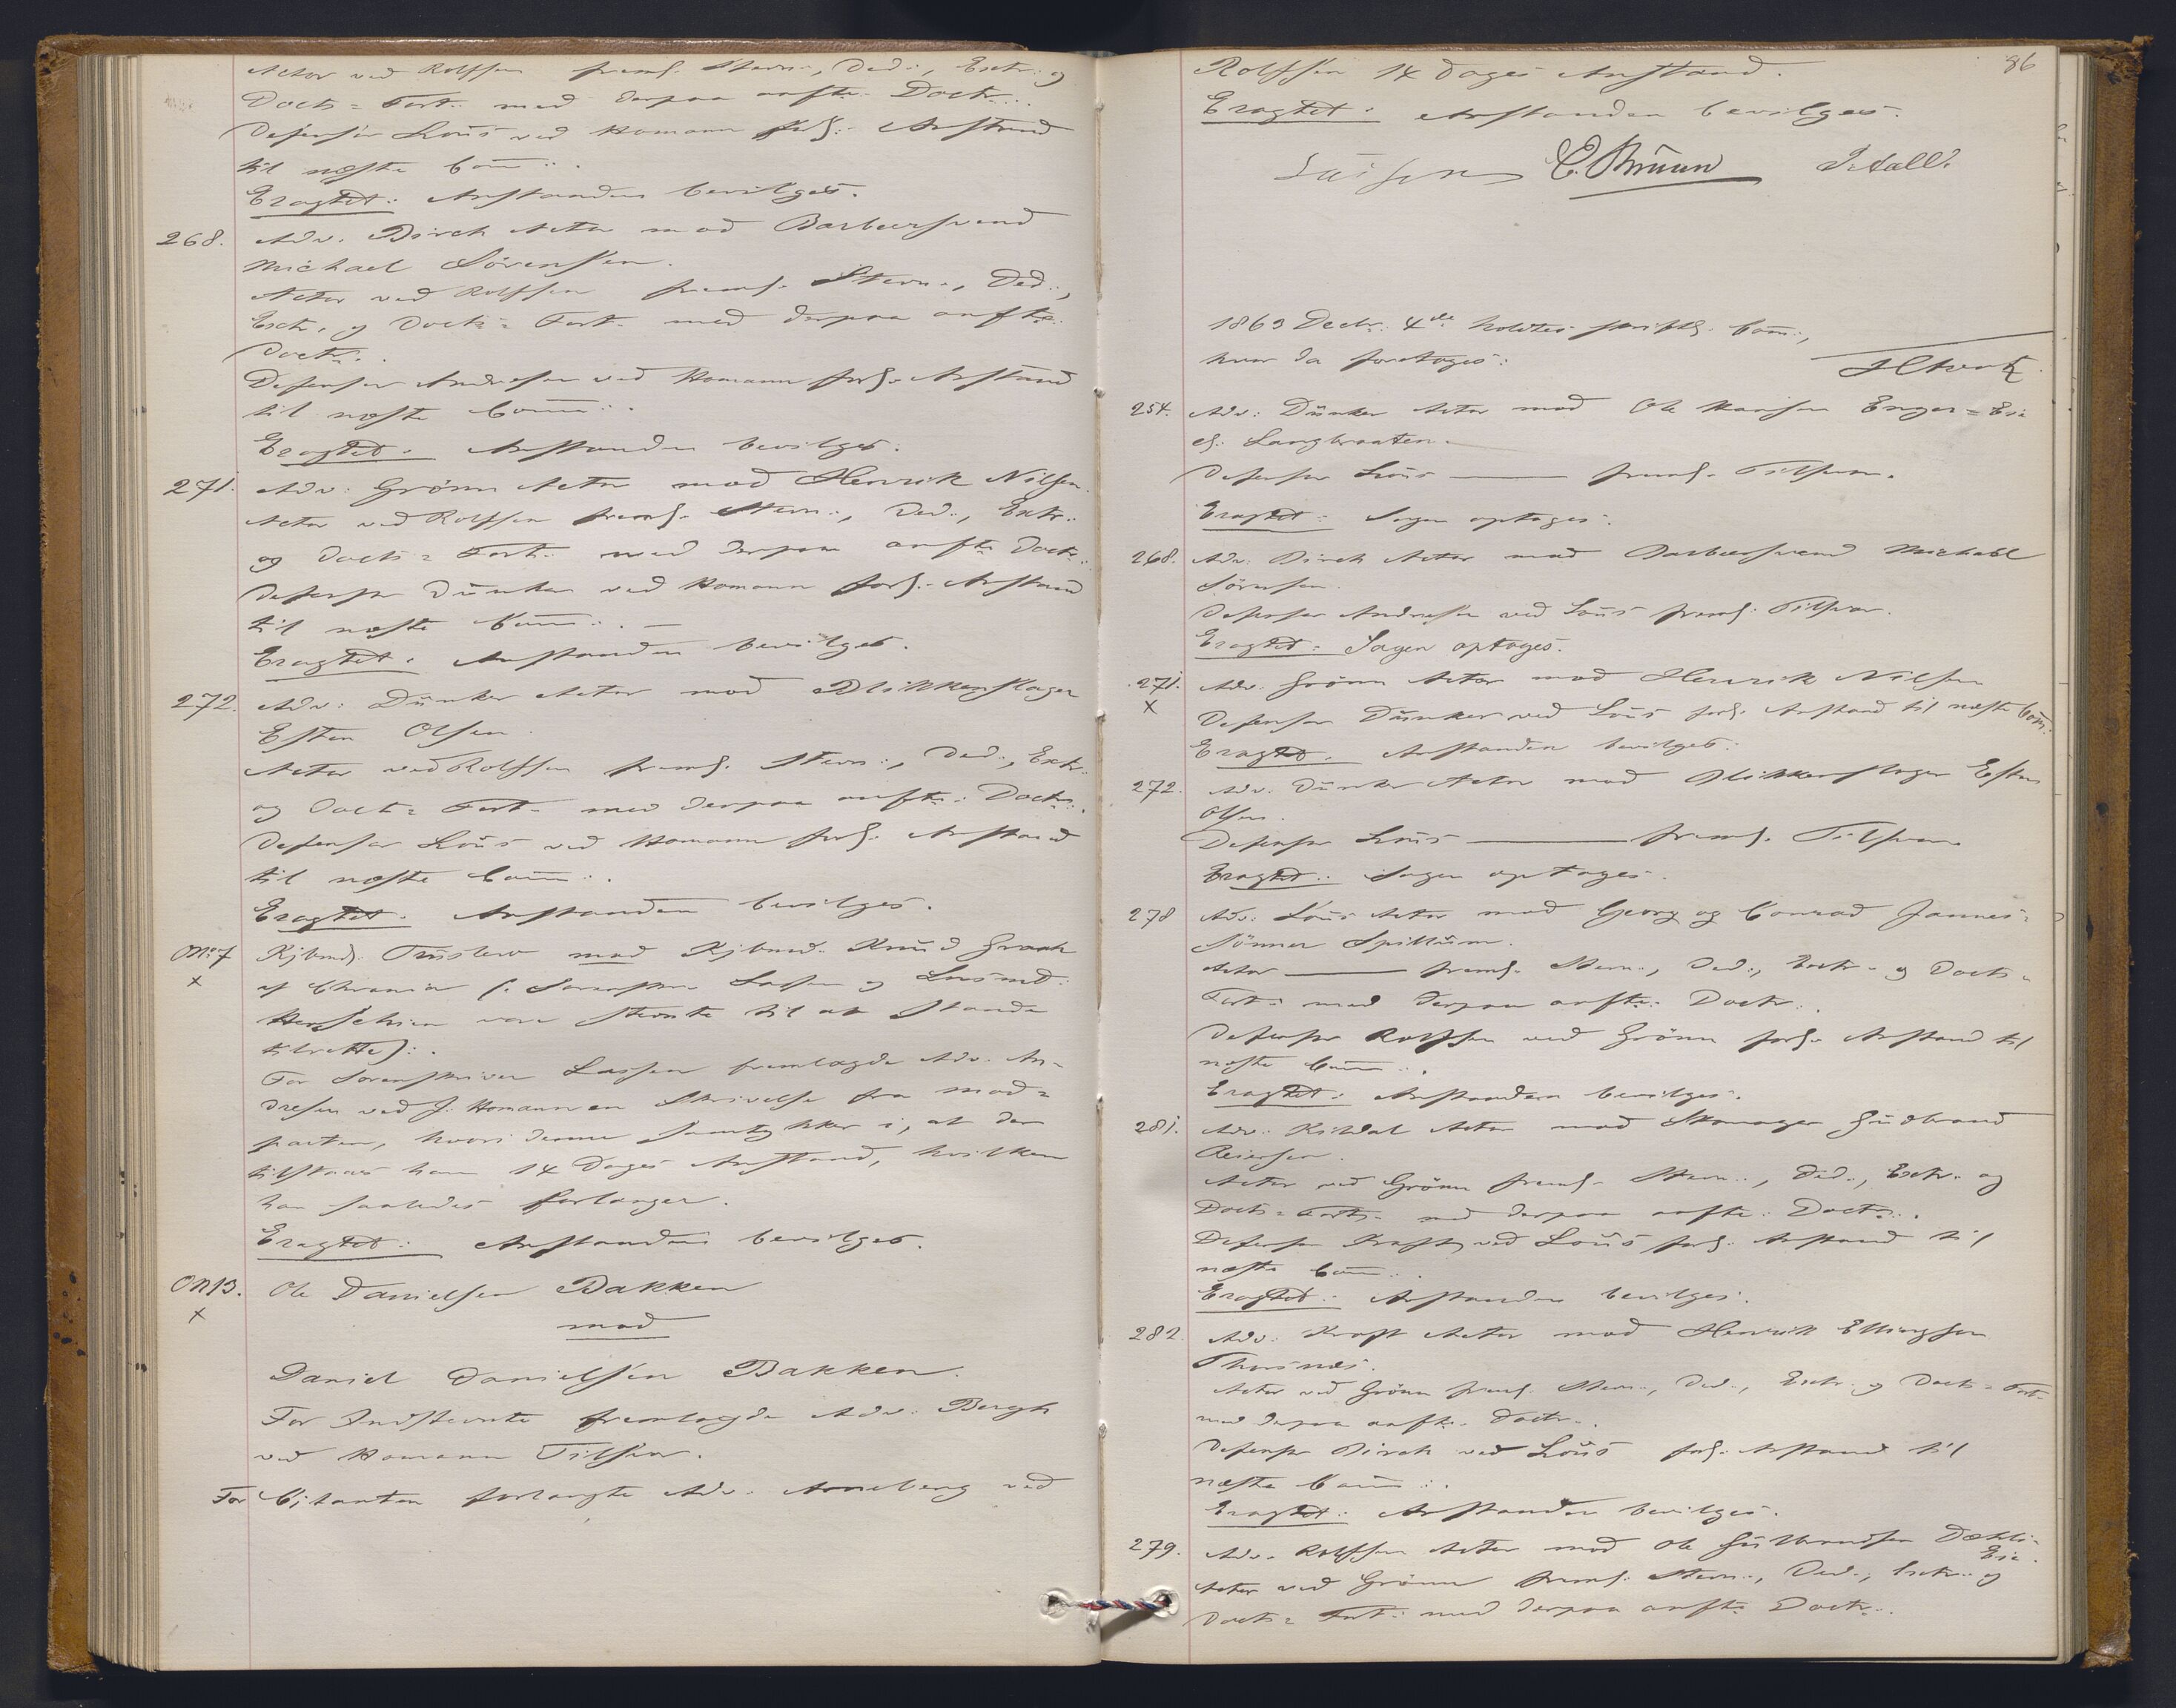 Actor ved Rolfsen freml. Stevn., Ded:, Extr: og
Docts= Fort: med derpaa anfte Doctr:.
Defensor Lous ved Homann forl: Anstand
til næste Com:.
Eragtet: Anstanden bevilges.
268. Adv. Birch Actor mod Barbeersvend
Michael Sörensen.
Actor ved Rolfsen freml. Stevn., Ded:,
Extr. og Docts= Fort. med derpaa anfte:
Doctr:.
Defensor Andresen ved Homann forl. Anstand
til næste Com:.
Eragtet: Anstanden bevilges.
271. Adv: Grönn Actor mod Henrik Nilsen.
Actor ved Rolfsen freml. Stevn:, Ded:, Extr:
og Docts= Fort: med derpaa anfte Doctr:.
Defensor Dunker ved Homann forl: Anstand
til næste Com:. —
Eragtet: Anstanden bevilges.
272. Adv: Dunker Actor mod Blikkenslager
Esten Olsen.
Actor ved Rolfsen freml. Stevn:, Ded:, Extr:
og Docts= Fort. med derpaa anfte: Doctr:.
Defensor Lous ved Homann forl. Anstand
til næste Com:.
Eragtet: Anstanden bevilges.
O No 7 Kjbmd. Truslew mod Kjbmd. Knud Graah
x af Chrania (: Sorenskr Lassen og
vare stevnte til at staae
tilrette):.
For Sorenskriver Lassen fremlagde Adv. An-
dresen ved J. Homann en Skrivelse fra Mod=
parten, hvori denne samtykker i, at der
tilstaaes ham 14 Dages Anstand, hvilken
han saaledes forlanger.
Eragtet: Anstanden bevilges.
O N 13. Ole Danielsen Bakken
x mod
Daniel Danielsen Bakken.
For Indstevnte fremlagde Adv: Bergh
ved Homann Tilsvar.
For Citanten forlangte Adv. Anneberg ved
86
Rolfsen 14 Dages Anstand.
Eragtet: Anstanden bevilges.
Lassen C. Bruun
1863 Decbr. 4de holdtes skriftl. Com:,
hvor da foretoges:
254. Adv: Dunker Actor mod Ole Hansen Enger= Eie
el. Langbraaten.
Defensor Lous —— freml. Tilsvar.
Eragtet: Sagen optages.
268. Adv: Birch Actor mod Barbeersvend Michael
Sörensen.
Defensor Andresen ved Lous freml: Tilsvar.
Eragtet: Sagen optages.
271. Adv. Grönn Actor mod Henrik Nilsen
x Defensor Dunker ved Lous forl. Anstand til næste Com:
Eragtet: Anstanden bevilges.
272. Adv. Dunker Actor mod Blikkenslager Esten
Olsen.
Defensor Lous —— freml. Tilsvar.
Eragtet: Sagen optages.
278 Adv: Lous Actor mod Georg og Conrad Jannes=
sönner Spillum.
Actor —— freml. Stevn., Ded:, Extr. og Docts=
Fort: med derpaa anfte: Doctr:.
Defensor Rolfsen ved Grönn forl. Anstand til
næste Com:.
Eragtet: Anstanden bevilges.
281. Adv: Kildal Actor mod Skomager Gudbrand
Reiersen.
Actor ved Grönn freml. Stevn:, Ded:, Extr. og
Docts= Fort. med derpaa anfte: Doctr:.
Defensor Kraft ved Lous forl. Anstand til
næste Com:.
Eragtet: Anstanden bevilges.
282. Adv: Kraft Actor mod Henrik Ellingsen
Thorsnæs.
Actor ved Grönn freml. Stevn:, Ded:, Extr. og Docts= Fort.
med derpaa anfte. Doctr:.
Defensor Birch ved Lous forl. Anstand til
næste Com:.
Eragtet: Anstanden bevilges.
279. Adv. Rolfsen Actor mod Ole Gulbrandsen Dæhli=
Eie.
Actor ved Grönn freml. Stevn:, Ded:, Extr: og
Docts= Fort: med derpaa anfte Doctr:.